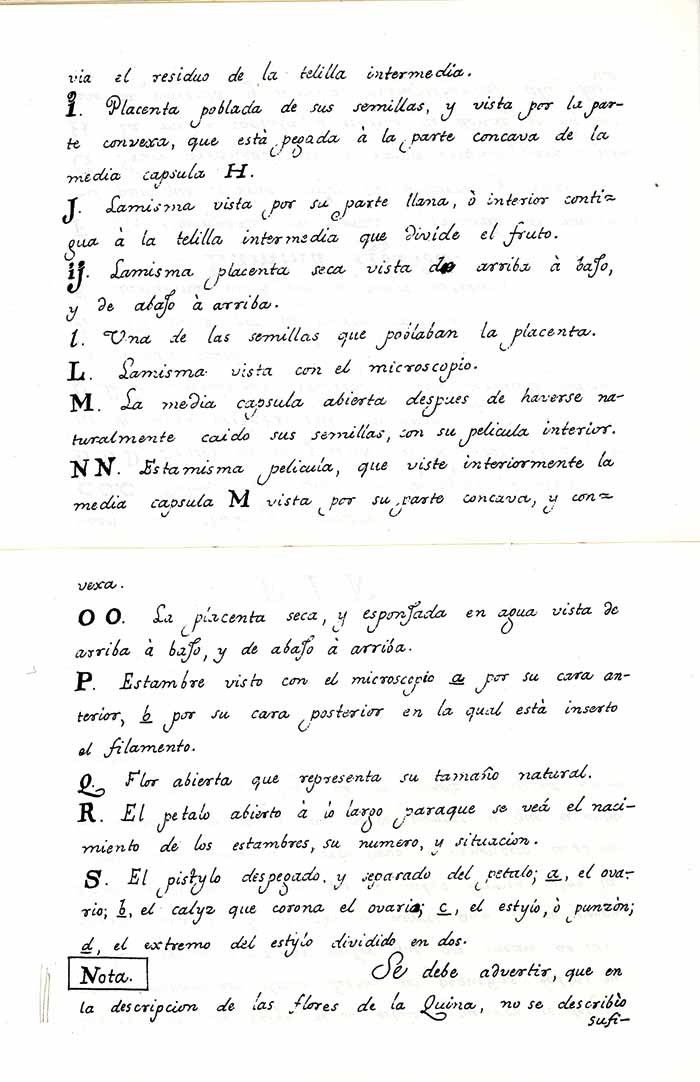 via el residuo de la telilla intermedia.
I. Placenta poblada de sus semillas, y vista por la par-
te convexa, que està pegada à la parte concava de la
media capsula H.
J. Lamisma vista por su parte llana, ò interior conti=
gua à la telilla intermedia que divide el fruto.
IJ. Lamisma placenta seca vista de arriba à baſo,
y de abaſo à arriba.
l. Una de las semillas que poblaban la placenta.
L. Lamisma vista con el microscopio.
M. La media capsula abierta despues de haverse na-
turalmente caido sus semillas, con su pelicula interior.
NN. Estamisma pelicula, que viste interiormente la
media capsula M vista por su parte concava, y con=
vexa.
OO. La placenta seca, y esponſada en agua vista de
arriba à baſo, y de abaſo à arriba.
P. Estambre visto con el microscopio a por su cara an-
terior, b por su cara posterior en la qual està inserto
el filamento.
Q. Flor abierta que representa su tamaño natural.
R. El petalo abierto à lo largo paraque se veá el naci-
miento de los estambres, su numero, y situacion.
S. El pistylo despegado, y separado del petalo; a, el ova-
rio; b, el calyz que corona el ovario; c, el estylo, ò punzòn;
d, el extremo del estylo dividido en dos.
Nota. Sé debe advertir, que en
la descripcion de las flores de la Quina, no se describìo
sufi-